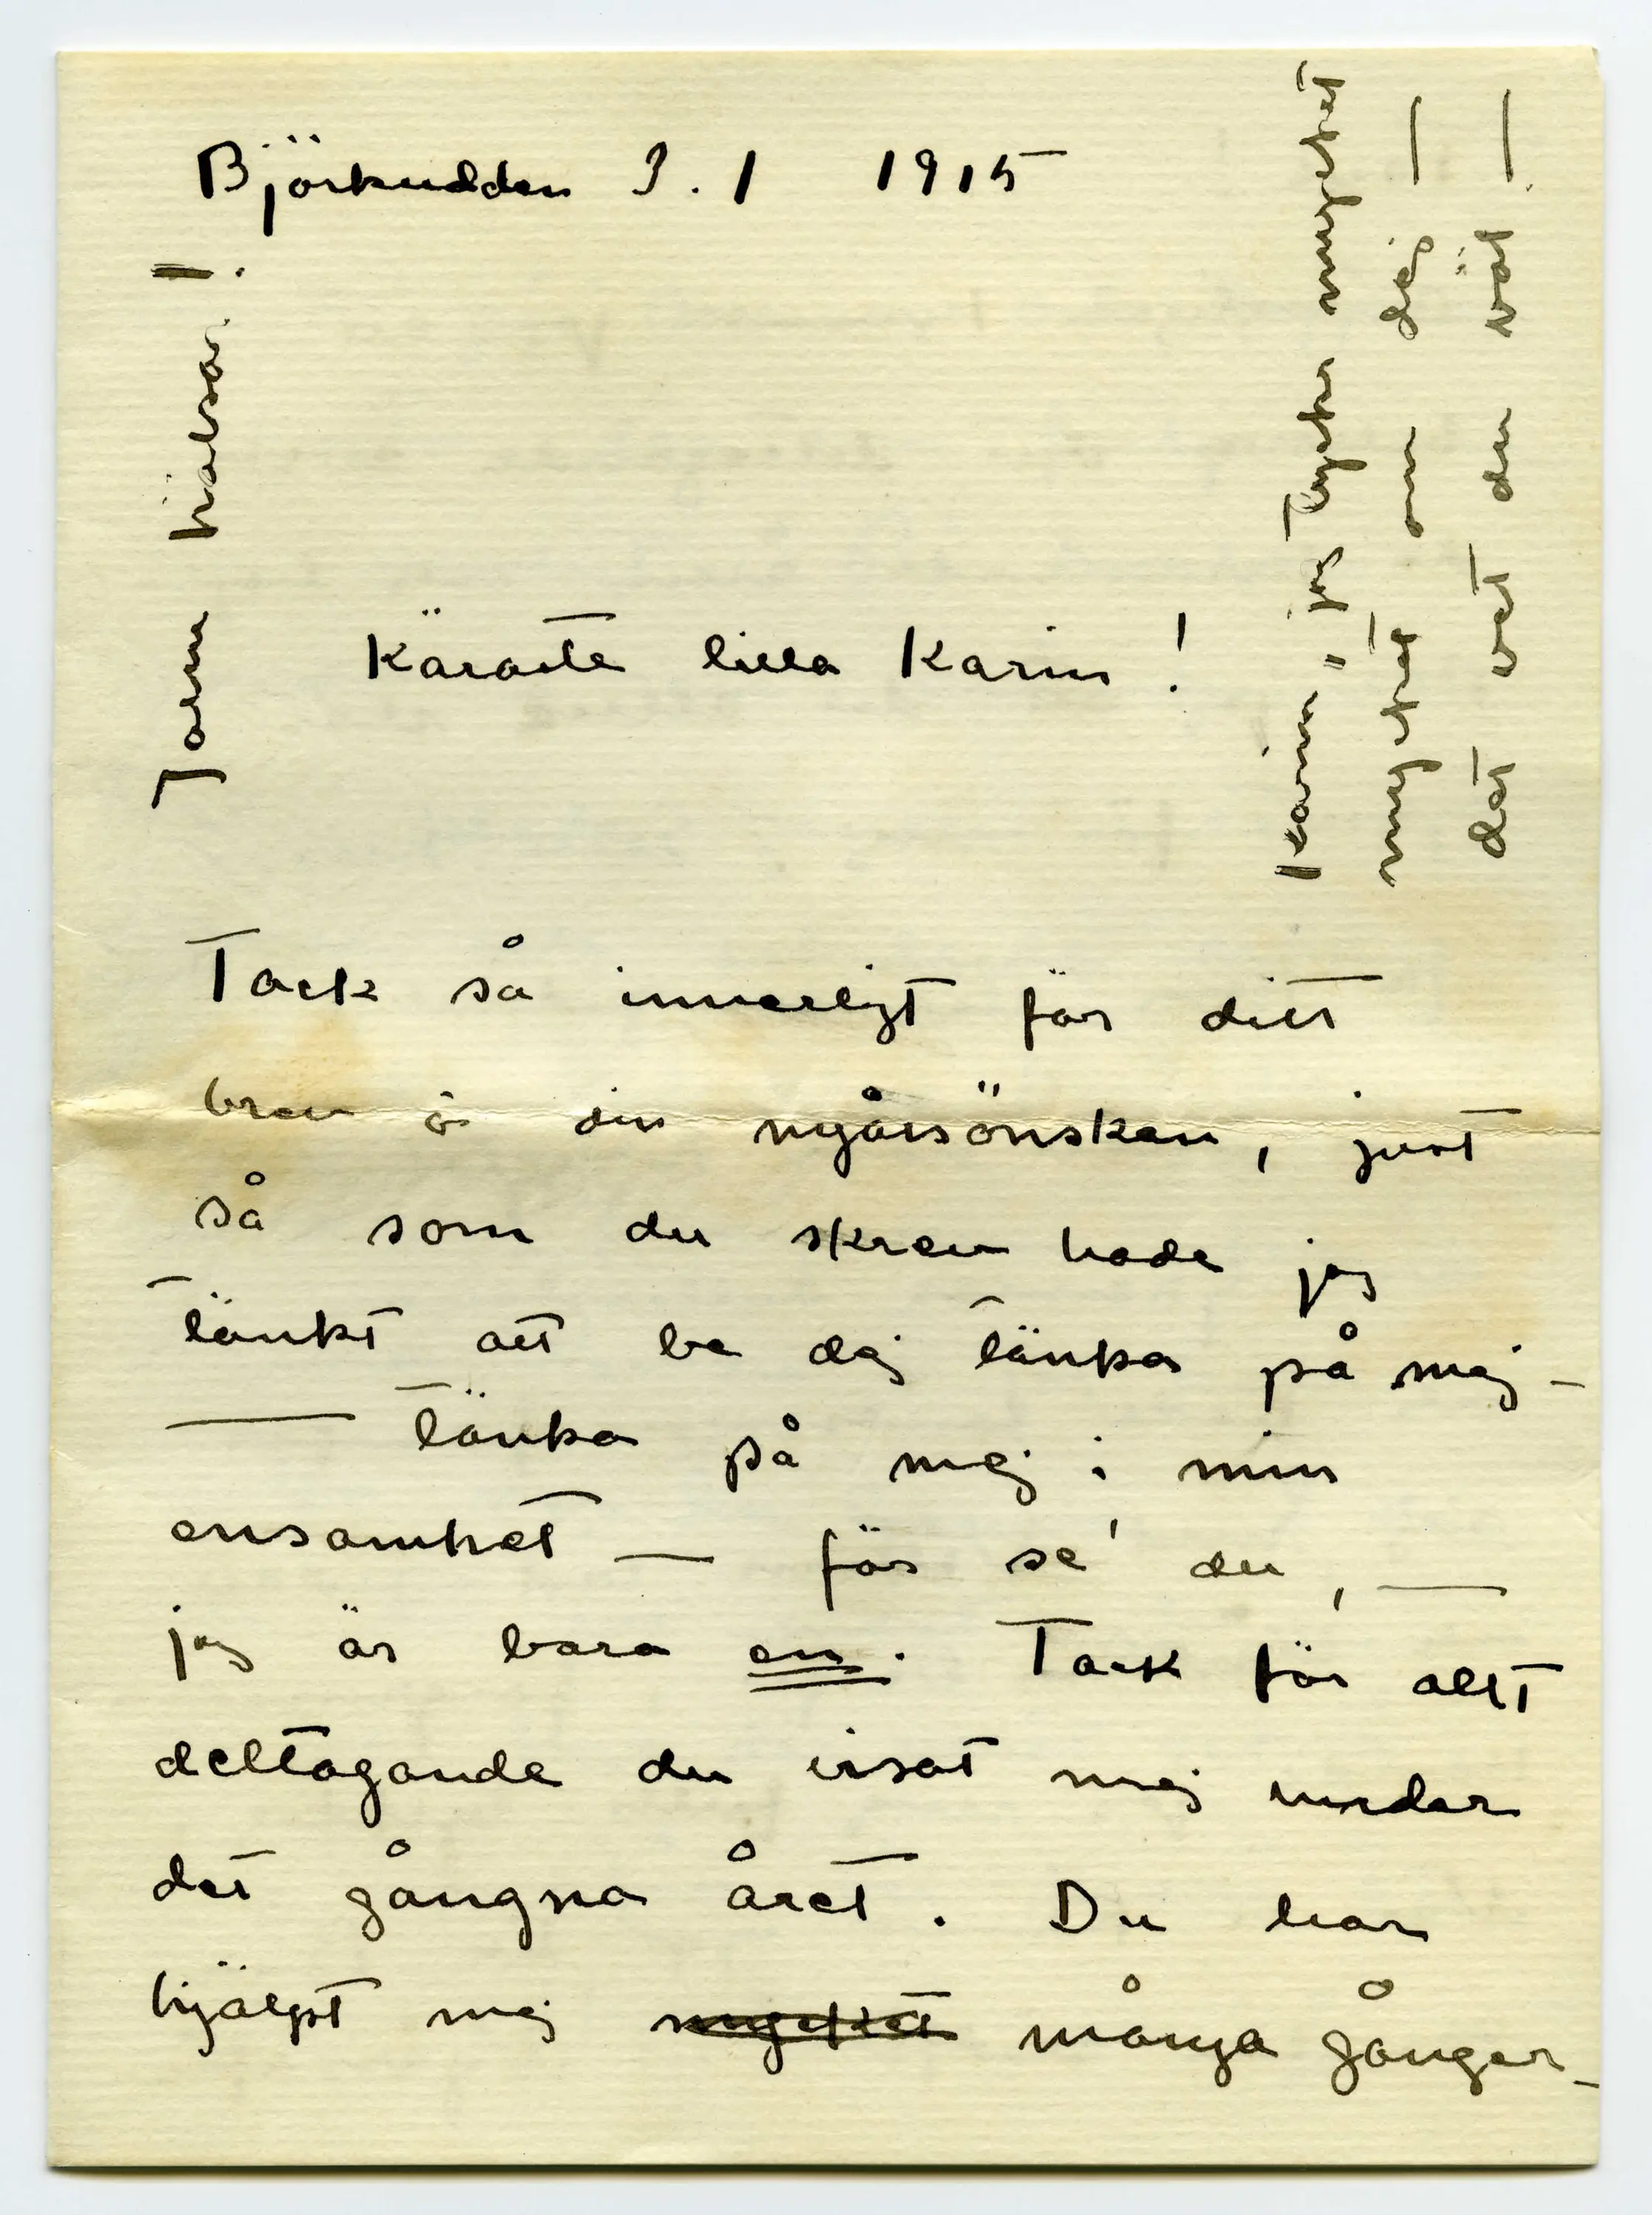 Björkudden 3.1 1915
Jarn hälsar!
Karin, jag tycker mycket
mycket om dej —
det vet du väl —
Käraste lilla Karin!
Tack så innerligt för ditt
brev å din nyårsönskan, just
så som du skrev hade jag
tänkt att be dej tänka på mej –
— tänka på mej i min
ensamhet — för se' du, —
jag är bara en. Tack för allt
deltagande du visat mej under
det gångna året. Du har
hjälpt mej mycket många gånger –